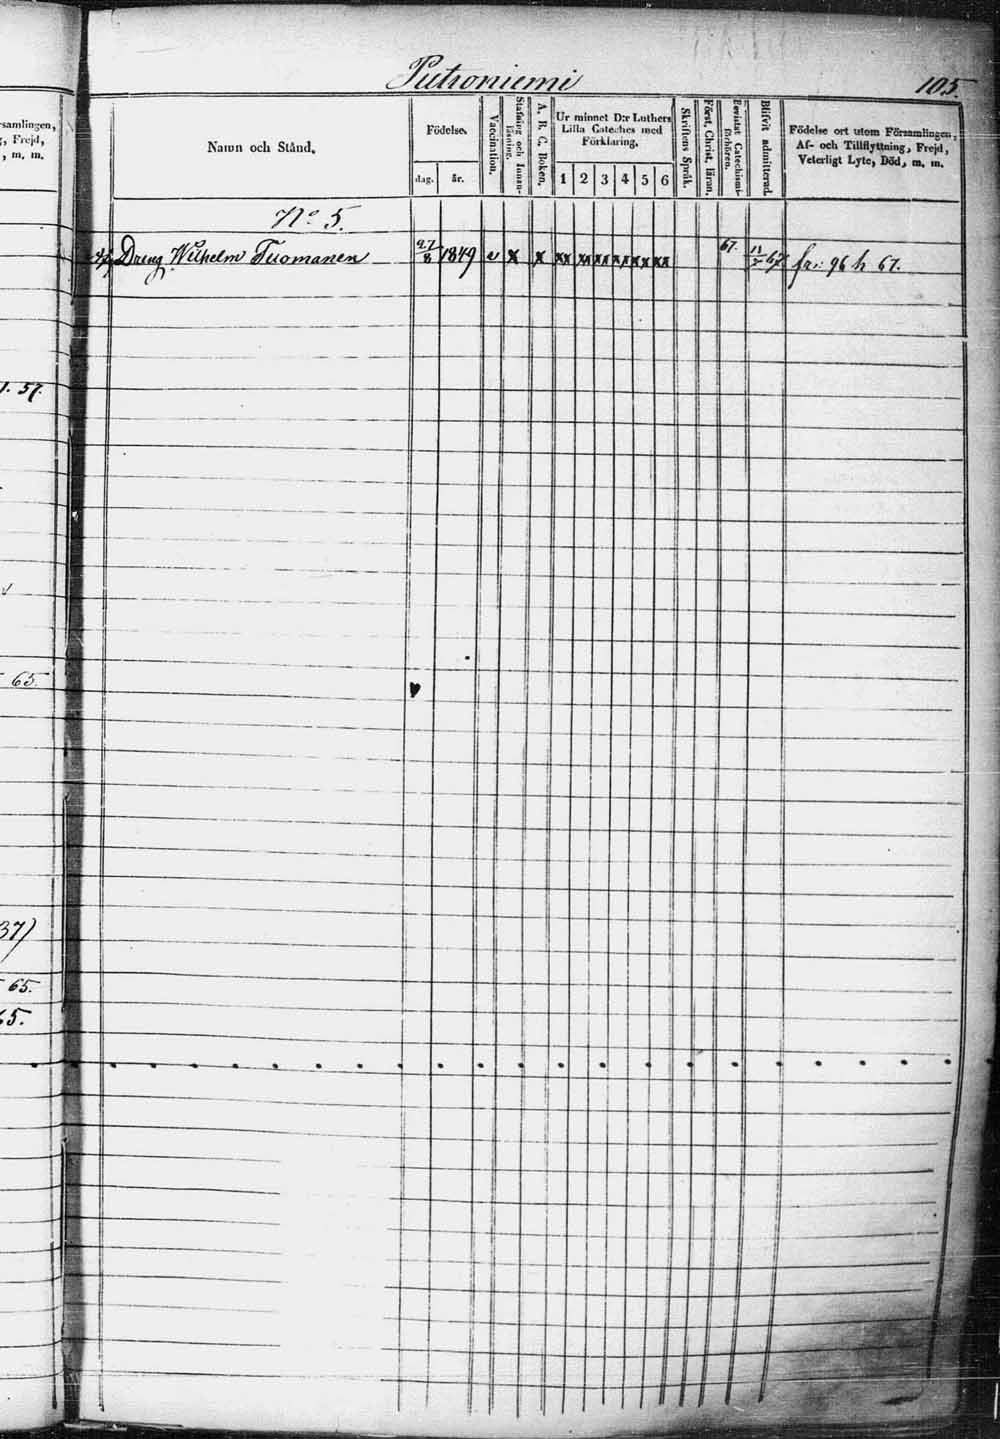 Putroniemi 105.
Namn och Stånd.
Födelse.
dag. år.
Vaccination.
Stafning och Innan-
läsning.
A. B. C. Boken.
Ur minnet D:r Luthers
Lilla Cateches med
Förklaring.
1 2 3 4 5 6
Skriftens Språk.
Först. Christ. läran.
Bevistat Catechismi-
förhören.
Blifvit admitterad.
Födelse ort utom Församlingen,
Af- och Tillflyttning, Frejd,
Veterligt Lyte, Död, m. m.
No 5.
Dreng Wilhelm Tuomanen 27/8 1849 v x x xx xx xx xx xx xx 67. 67 fr: 96 h 67.
rsamlingen,
, Frejd,
, m. m.
57.
65.
37)
65.
65.